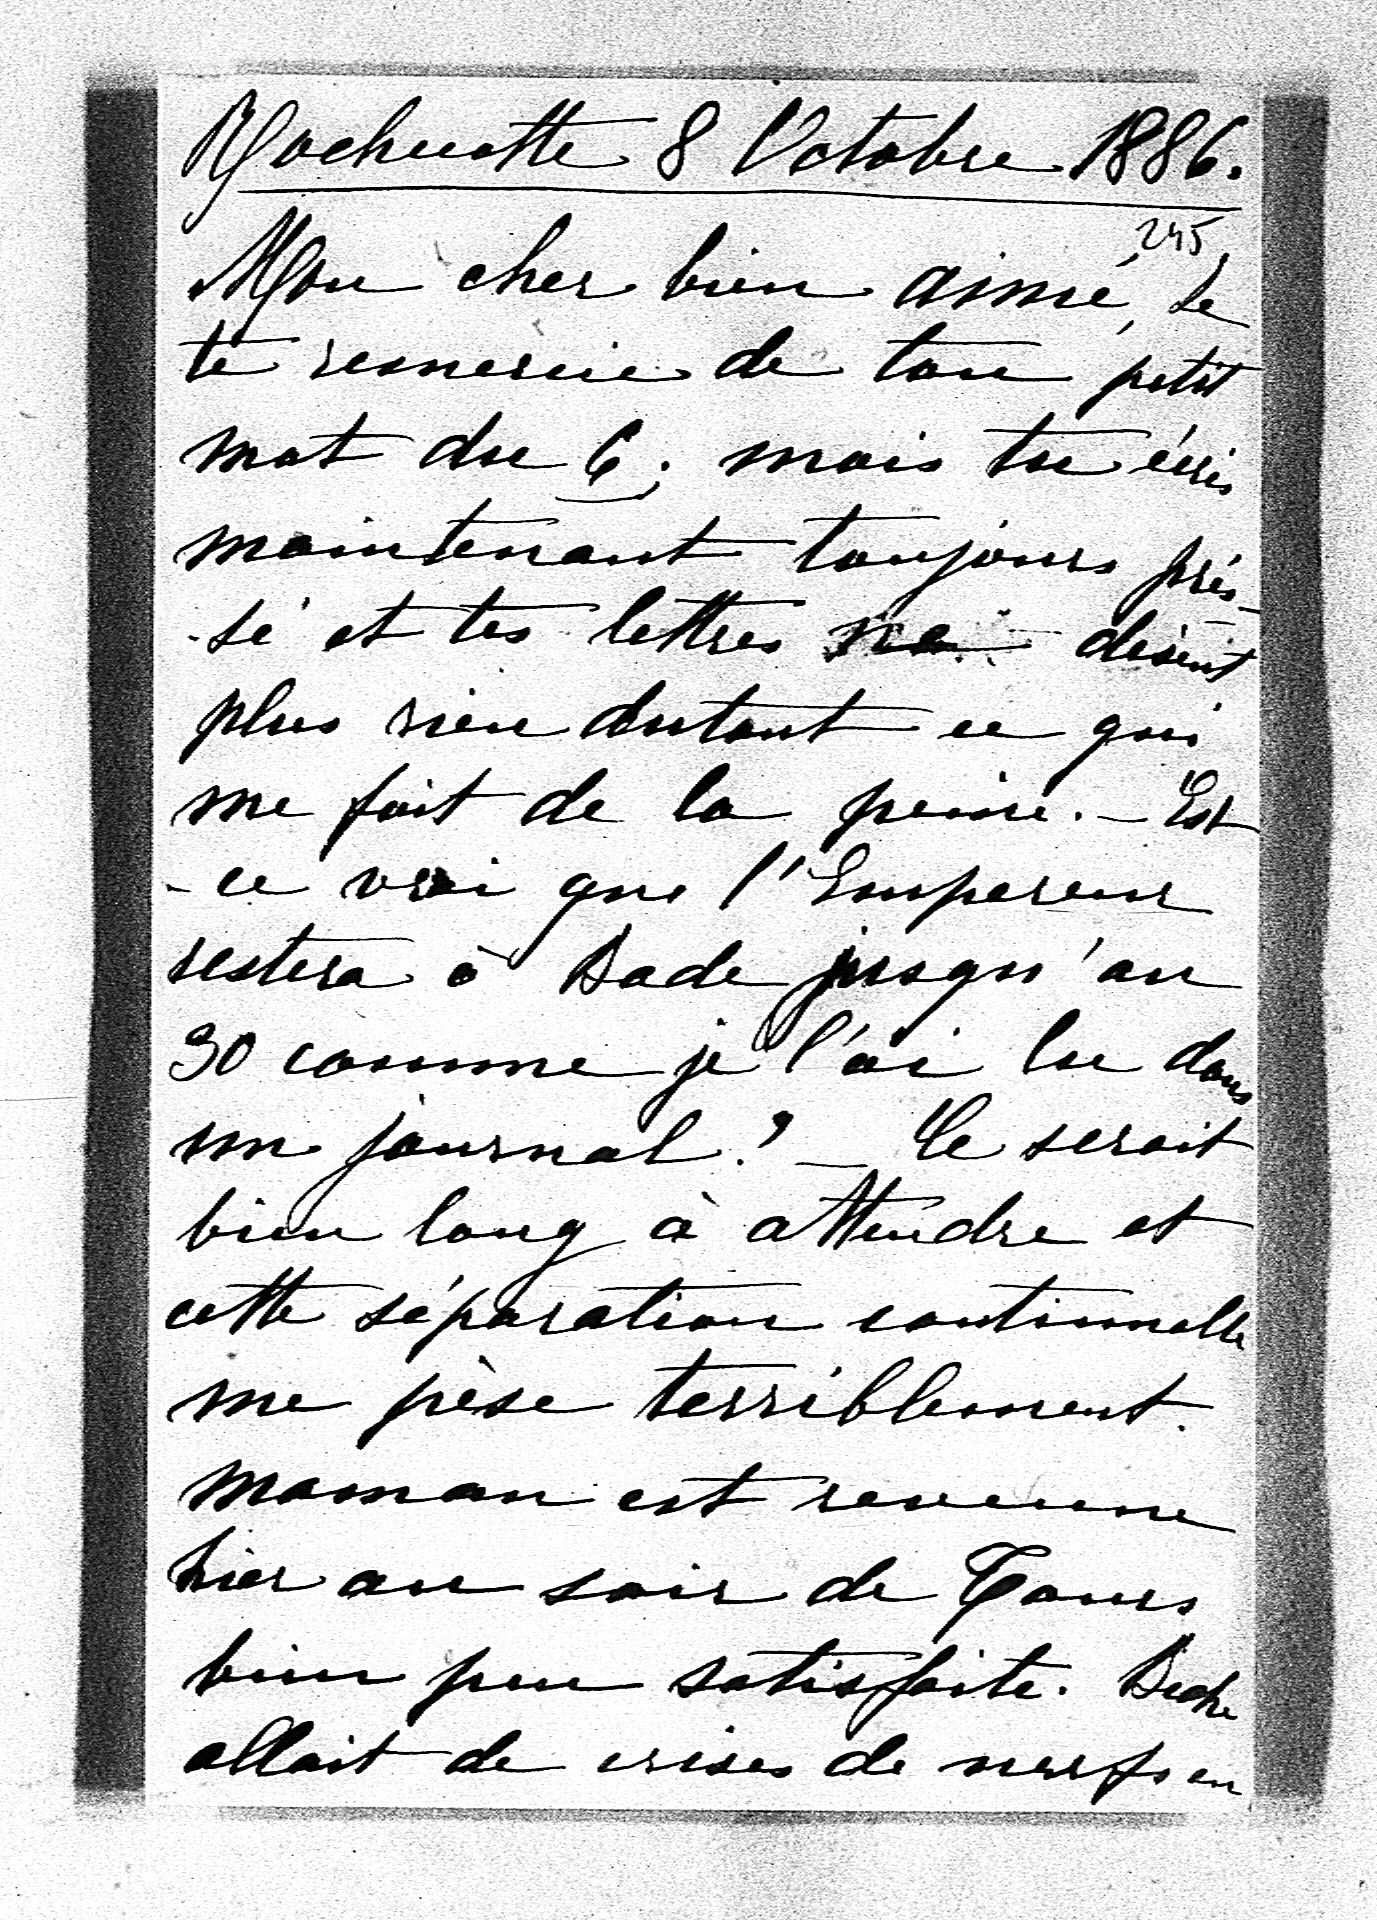 Rochecotte 8 Octobre 1886.
245
Mon cher bien aimé, Je
te remercie de ton petit
mot du 6; mais tu écris
maintenant toujours prés-
-sé et tes lettres ne disent
plus rien dutout ce qui
me fait de la peine. – Est
-ce vrai que l'Empereur
restera à Bade jusqu'au
30 comme je l'ai lu dans
un journal? – Ce serait
bien long à attendre et
cette séparation continuelle
me pèse terriblement.
Maman est revenue
hier au soir de Tours
bien peu satisfaite.
allait de crises de nerfs en